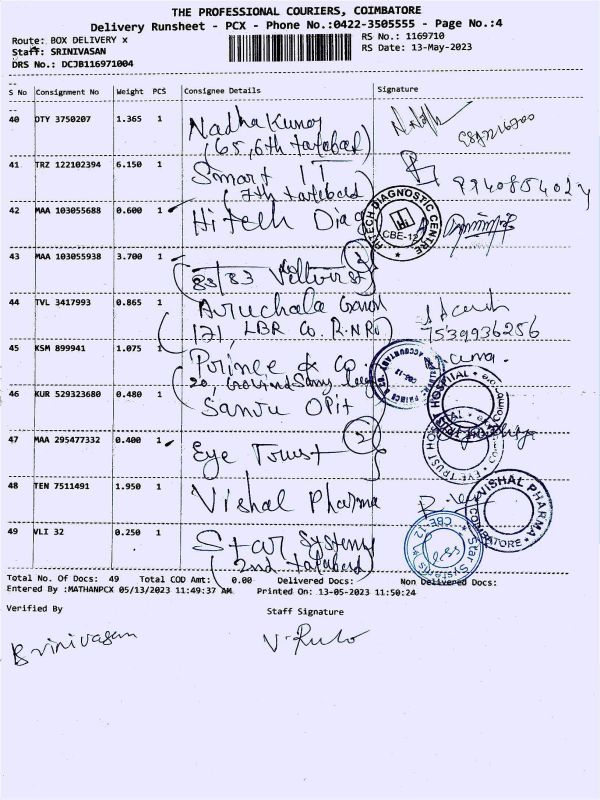 THE PROFESSIONAL COURIERS, COIMBATORE
Delivery Runsheet - PCX - Phone No.:0422-3505555 - Page No.:4
Route: BOX DELIVERY x
RS No.: 1169710
Staff: SRINIVASAN
RS Date: 13-May-2023
DRS No.: DCJB116971004
S No Consignment No Weight PCS Consignee Details Signature
40 DTY 3750207 1.365 1 Nadha Kumar
(65, 6th tatabad)
41 TRZ 122102394 6.150 1 Smart IT
(7th tatabad)
42 MAA 103055688 0.600 1 Hitech Diag
HITECH DIAGNOSTIC CENTRE
CBE-12
43 MAA 103055938 3.700 1
83/83
44 TVL 3417993 0.865 1 Aruchala
171, LBR Co. R.N Rd)
7539936256
45 KSM 899941 1.075 1 Prince & Co.
20,
46 KUR 529323680 0.480 1 Opit
EYE TRUST HOSPITAL
47 MAA 295477332 0.400 1 Eye Trust
EYE TRUST HOSPITAL
48 TEN 7511491 1.950 1 Vishal Pharma
VISHAL PHARMA
COIMBATORE
49 VLI 32 0.250 1 Star Systems
(2nd tatabad)
Star Systems
CBE-12
Total No. Of Docs: 49 Total COD Amt: 0.00 Delivered Docs: Non Delivered Docs:
Entered By :MATHANPCX 05/13/2023 11:49:37 AM Printed On: 13-05-2023 11:50:24
Verified By Staff Signature
Srinivasan